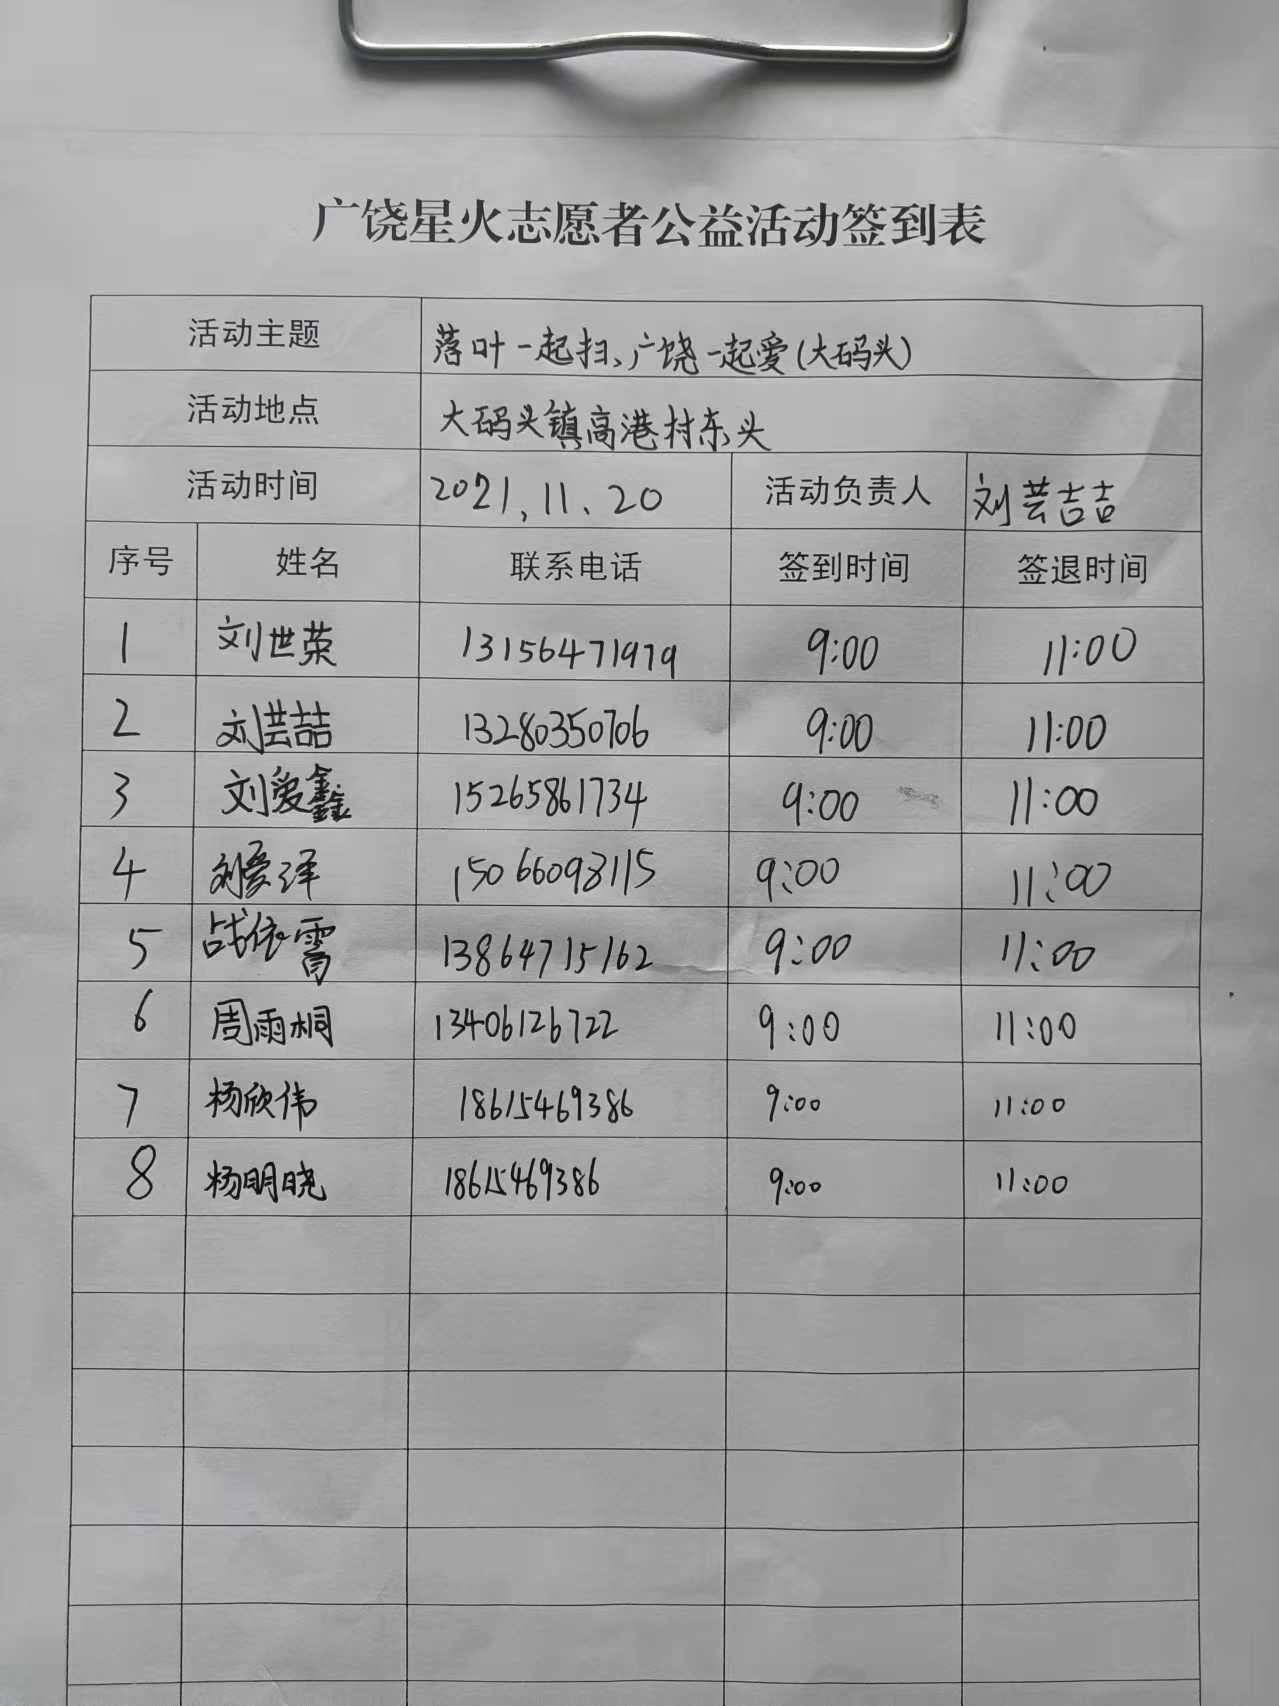 广饶星火志愿者公益活动签到表
活动主题 落叶一起扫、广饶一起爱(大码头)
活动地点 大码头镇高港村东头
活动时间 2021.11.20 活动负责人 刘芸喆
序号 姓名 联系电话 签到时间 签退时间
1 刘世荣 13156471979 9:00 11:00
2 刘芸喆 13280350706 9:00 11:00
3 刘爱鑫 15265861734 9:00 11:00
4 刘爱泽 15066098115 9:00 11:00
5 战依霄 13864715162 9:00 11:00
6 周雨桐 13406126722 9:00 11:00
7 杨欣伟 18615469386 9:00 11:00
8 杨明晓 18615469386 9:00 11:00